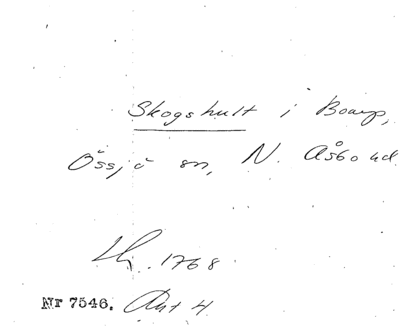 Skogshult i Boarp,
Össjö sn, N. Åsbo hd.
Lh. 1768.
Nr 7546. Akt 4.